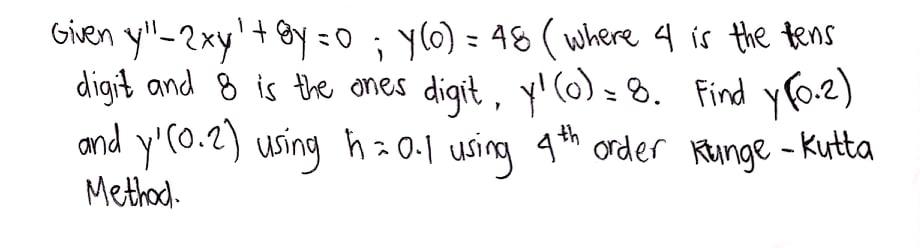 Given y''-2xy'+8y=0 ; y(0) = 48 (where 4 is the tens
digit and 8 is the ones digit, y'(0) = 8. Find y(0.2)
and y'(0.2) using h=0.1 using 4th order Runge-Kutta
Method.